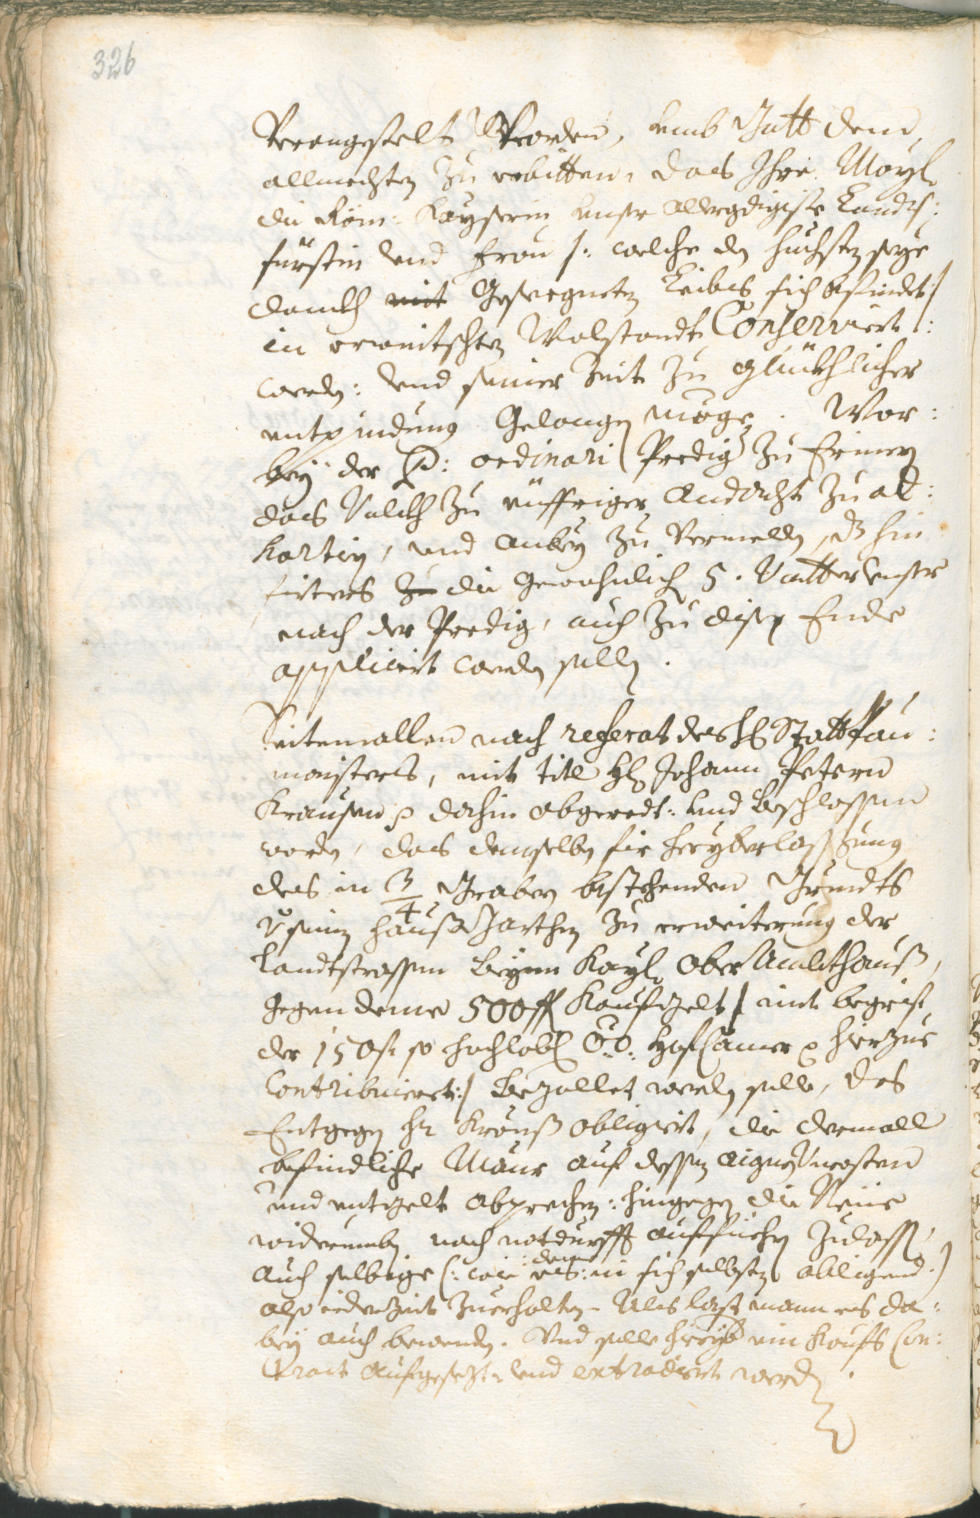 326
Verangestelt Worden, umb Gott dem
allmechtig zu erbitten, das Ihro Mayl.
die Röm: Kayserin unser allergdigiste Landts:
fürstin und Frau /: welche der
damth mit Gesegneten Leibs sich befindet :/
in erwintschten Wolstandt Conserviert
werden: und seiner Zeit zu glückhlicher
entpindung gelangen möge. Wor:
bey der P: ordinari Predig zu
das Volckh zu eüffriger Andacht zu ad:
hortirn, und anbey zu Vermelden, dz hin
firters zu die gewohnlich 5. Vatter unser
nach der Predig, auch zu disem Ende
applicirt werden sollen.
Seitemallen nach referat des H: Stattpau:
maisters, mit titl H: Johann Petern
Krausen p dahin abgeredt: und Beschlossen
worden, das demselben für
des in 3/4 Graben bestehenden Grundts
v seinem Hauß Garthen zu erweiterung der
Landtstrassen Beym Kayl. Ober Ambthauß,
gegen deme 500 fl Kaufgelt /: mit begrif
der 150 fl so hochlobl: O:Ö: Hofcamer p hierzue
Contribuiert :/ Bezallet werden solle, das
Entgegen Hr Krauß obligirt, die dermall
befindliche Maur auf dessen aigne Uncosten
und entgelt abprechen: hingegen die Neüe
widerumben nach notdurfft auffüehrn zulassen,
auch selbige (: wie deme es: in sich selbsten obligend :)
also iederzeit zuerhalten. Als last mann es da:
bey auch bewenden. Und solle hieryber ein Kaufs Con:
tract aufgesezt, und extradirt werden.